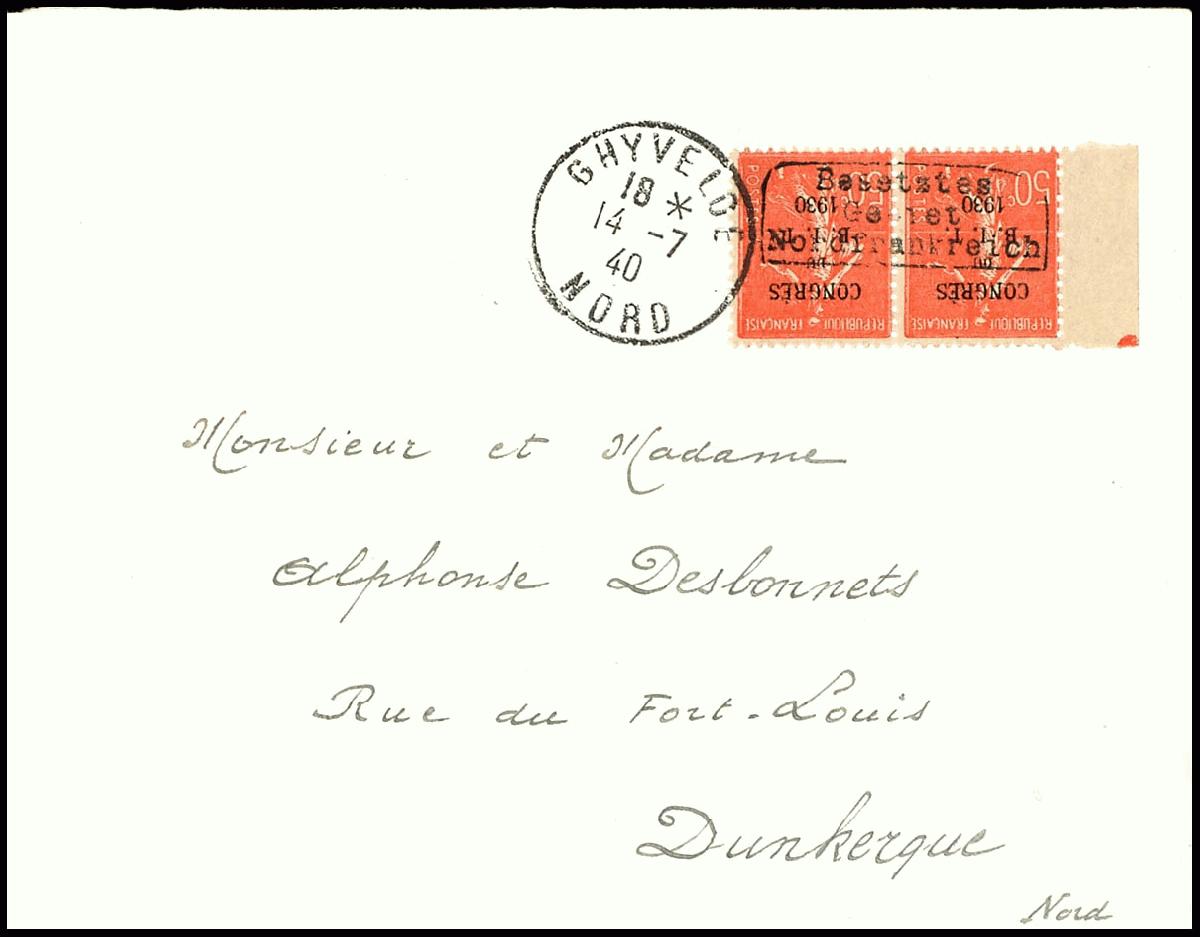 GHYVELDE
18 *
14 -7
40
NORD
Besetztes
Gebiet
Nordfrankreich
50c 50c
1930 1930
B.I.T. B.I.T.
DU DU
CONGRÈS CONGRÈS
RÉPUBLIQUE FRANÇAISE RÉPUBLIQUE FRANÇAISE
Monsieur et Madame
Alphonse Desbonnets
Rue du Fort-Louis
Dunkerque
Nord